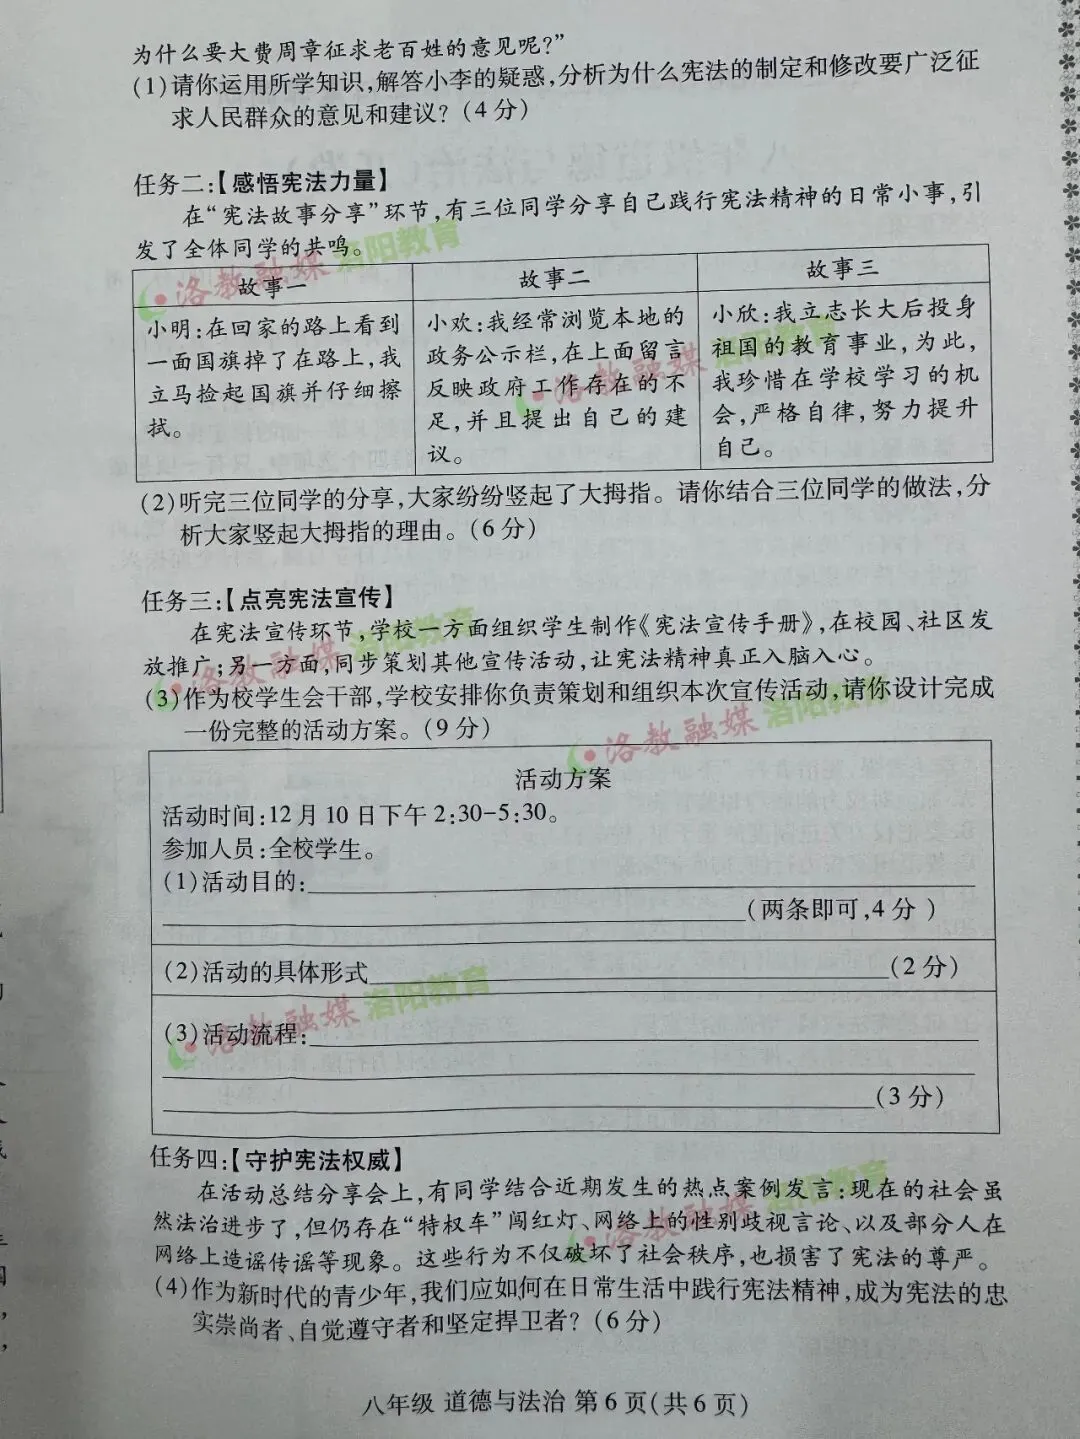 为什么要大费周章征求老百姓的意见呢?”
(1)请你运用所学知识,解答小李的疑惑,分析为什么宪法的制定和修改要广泛征
求人民群众的意见和建议?(4分)
任务二:【感悟宪法力量】
在“宪法故事分享”环节,有三位同学分享自己践行宪法精神的日常小事,引
发了全体同学的共鸣。
故事一
故事二
故事三
小明:在回家的路上看到
一面国旗掉了在路上,我
立马捡起国旗并仔细擦
拭。
小欢:我经常浏览本地的
政务公示栏,在上面留言
反映政府工作存在的不
足,并且提出自己的建
议。
小欣:我立志长大后投身
祖国的教育事业,为此,
我珍惜在学校学习的机
会,严格自律,努力提升
自己。
(2)听完三位同学的分享,大家纷纷竖起了大拇指。请你结合三位同学的做法,分
析大家竖起大拇指的理由。(6分)
任务三:【点亮宪法宣传】
在宪法宣传环节,学校一方面组织学生制作《宪法宣传手册》,在校园、社区发
放推广;另一方面,同步策划其他宣传活动,让宪法精神真正入脑入心。
(3)作为校学生会干部,学校安排你负责策划和组织本次宣传活动,请你设计完成
一份完整的活动方案。(9分)
活动方案
活动时间:12月10日下午2:30-5:30。
参加人员:全校学生。
(1)活动目的:
(两条即可,4分)
(2)活动的具体形式 (2分)
(3)活动流程:
(3分)
任务四:【守护宪法权威】
在活动总结分享会上,有同学结合近期发生的热点案例发言:现在的社会虽
然法治进步了,但仍存在“特权车”闯红灯、网络上的性别歧视言论、以及部分人在
网络上造谣传谣等现象。这些行为不仅破坏了社会秩序,也损害了宪法的尊严。
(4)作为新时代的青少年,我们应如何在日常生活中践行宪法精神,成为宪法的忠
实崇尚者、自觉遵守者和坚定捍卫者?(6分)
八年级 道德与法治 第6页(共6页)
洛教融媒 洛阳教育
洛教融媒 洛阳教育
洛教融媒 洛阳教育
洛教融媒 洛阳教育
洛教融媒 洛阳教育
洛教融媒 洛阳教育